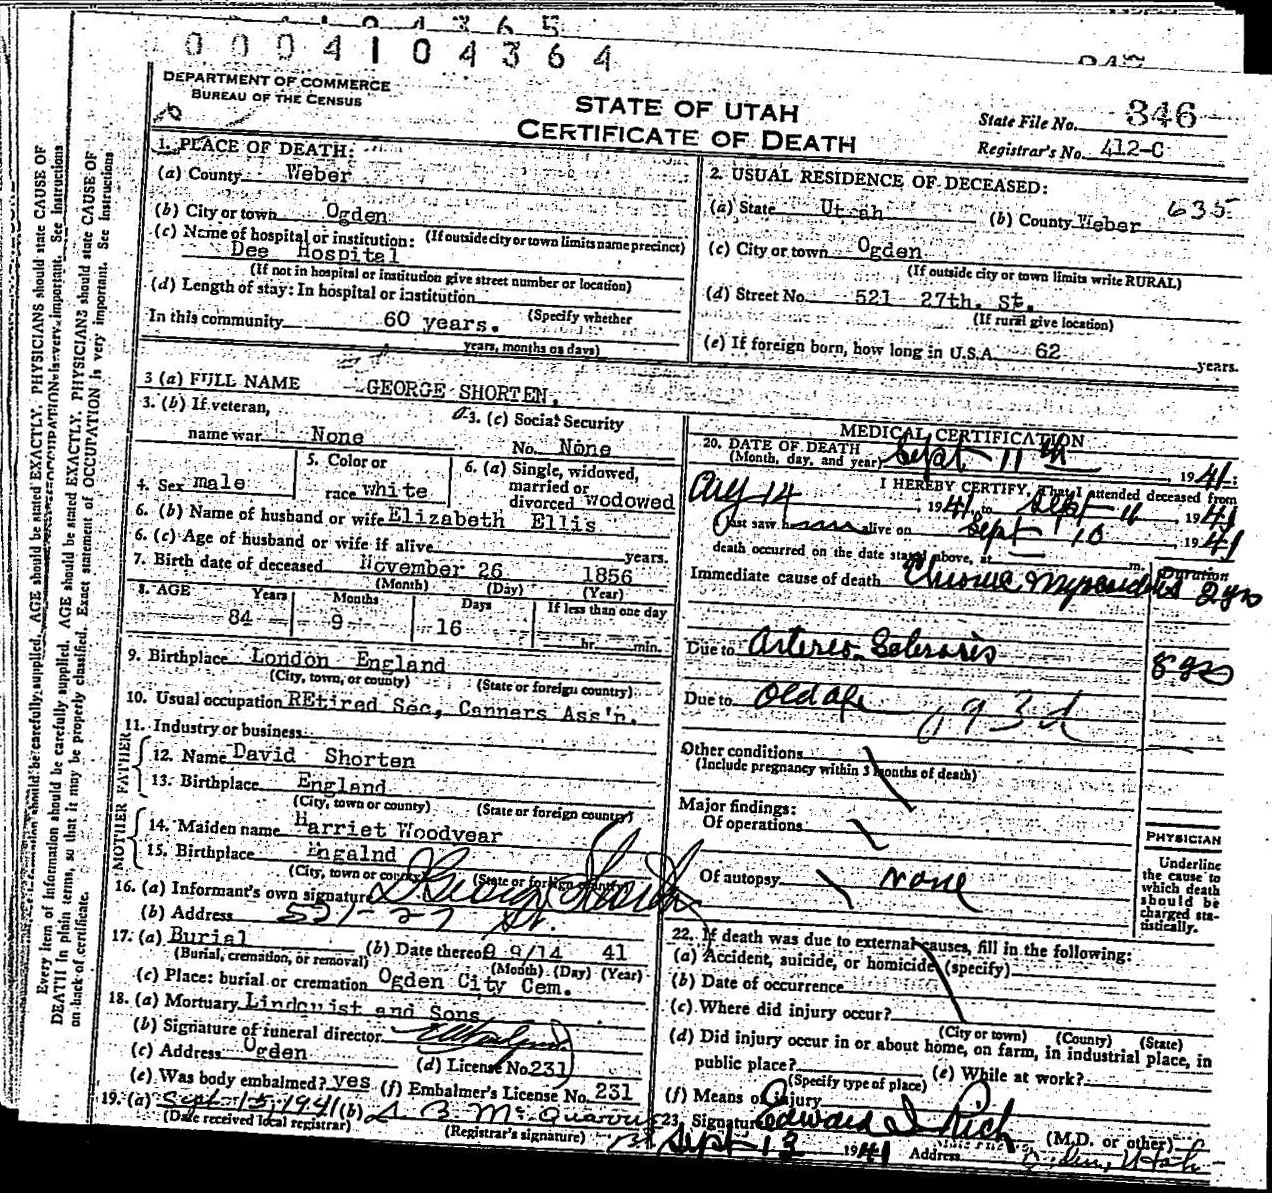 0004104364
DEPARTMENT OF COMMERCE
BUREAU OF THE CENSUS
STATE OF UTAH
CERTIFICATE OF DEATH
State File No. 346
Registrar's No. 412-C
1. PLACE OF DEATH:
(a) County Weber
(b) City or town Ogden
(If outside city or town limits name precinct)
(c) Name of hospital or institution:
Dee Hospital
(If not in hospital or institution give street number or location)
(d) Length of stay: In hospital or institution
(Specify whether
In this community 60 years.
years, months or days)
2. USUAL RESIDENCE OF DECEASED:
635
(a) State Utah (b) County Weber
(c) City or town Ogden
(If outside city or town limits write RURAL)
(d) Street No. 521 27th. St.
(If rural give location)
(e) If foreign born, how long in U.S.A. 62 years.
3 (a) FULL NAME GEORGE SHORTEN.
3. (b) If veteran,
name war None
3. (c) Social Security
No. None
4. Sex male
5. Color or
race white
6. (a) Single, widowed,
married or
divorced wodowed
6. (b) Name of husband or wife Elizabeth Ellis
6. (c) Age of husband or wife if alive years.
7. Birth date of deceased November 26 1856
(Month) (Day) (Year)
8. AGE Years Months Days If less than one day
84 9 16 hr. min.
9. Birthplace London England
(City, town, or county) (State or foreign country)
10. Usual occupation REtired Sec, Canners Ass'n.
11. Industry or business
FATHER
12. Name David Shorten
13. Birthplace England
(City, town or county) (State or foreign country)
MOTHER
14. Maiden name Harriet Woodyear
15. Birthplace Engalnd
(City, town or county) (State or foreign country)
16. (a) Informant's own signature D George Shorten
(b) Address 521-27 St.
17. (a) Burial (b) Date thereof 9 9/14 41
(Burial, cremation, or removal) (Month) (Day) (Year)
(c) Place: burial or cremation Ogden City Cem.
18. (a) Mortuary Lindquist and Sons
(b) Signature of funeral director
(c) Address Ogden (d) License No. 231
(e) Was body embalmed? yes (f) Embalmer's License No. 231
19. (a) Sept. 15, 1941 (b)
(Date received local registrar) (Registrar's signature)
MEDICAL CERTIFICATION
20. DATE OF DEATH
(Month, day, and year) Sept 11th 1941:
I HEREBY CERTIFY, That I attended deceased from
Aug 14 1941, to Sept 11, 1941
I last saw him alive on Sept 10 1941
death occurred on the date stated above, at m.
Duration
Immediate cause of death Chronic Myocarditis 2 yrs
Due to Arterio Sclerosis 8 yrs
Due to Old age 93d
Other conditions
(Include pregnancy within 3 months of death)
Major findings:
Of operations
Of autopsy none
PHYSICIAN
Underline
the cause to
which death
should be
charged sta-
tistically.
22. If death was due to external causes, fill in the following:
(a) Accident, suicide, or homicide (specify)
(b) Date of occurrence
(c) Where did injury occur?
(City or town) (County) (State)
(d) Did injury occur in or about home, on farm, in industrial place, in
public place? (e) While at work?
(Specify type of place)
(f) Means of injury
23. Signature Edward I Rich
(M.D. or other)
Sept 13 1941 Address Ogden, Utah
Every item of information should be carefully supplied. AGE should be stated EXACTLY. PHYSICIANS should state CAUSE OF
DEATH in plain terms, so that it may be properly classified. Exact statement of OCCUPATION is very important. See instructions
on back of certificate.